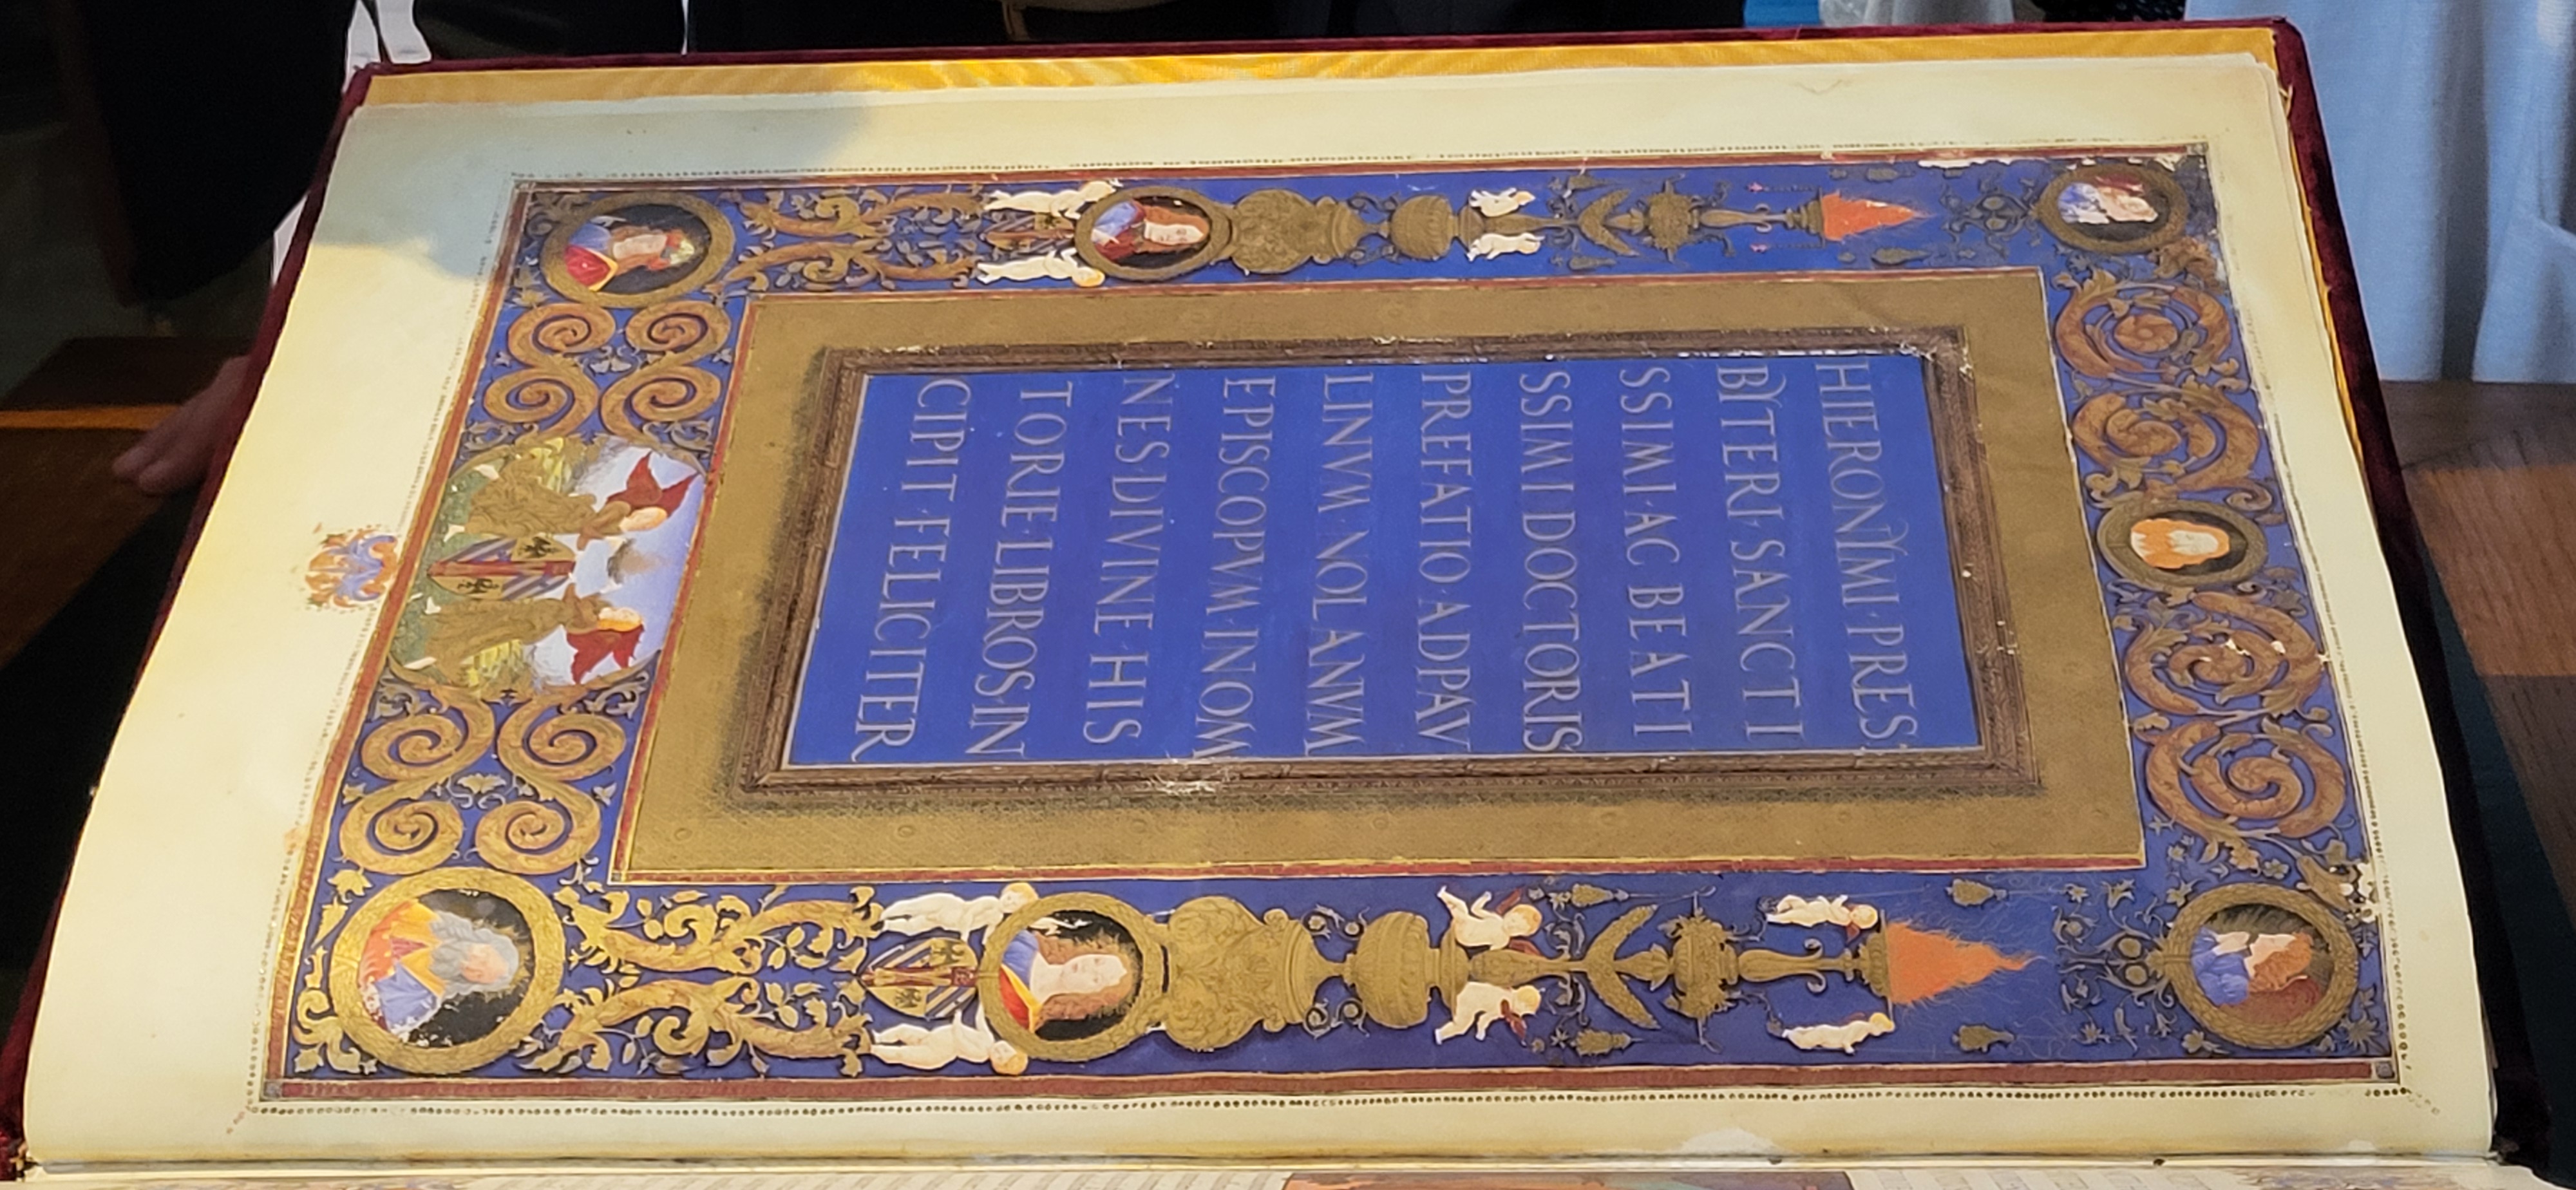 HIERONYMI·PRES
BYTERI·SANCTI
SSIMI·AC BEATI
SSIMI DOCTORIS
PREFATIO·ADPAV
LINVM NOLANVM
EPISCOPVM·INOM
NES·DIVINE·HIS
TORIE·LIBROS·IN
CIPIT·FELICITER